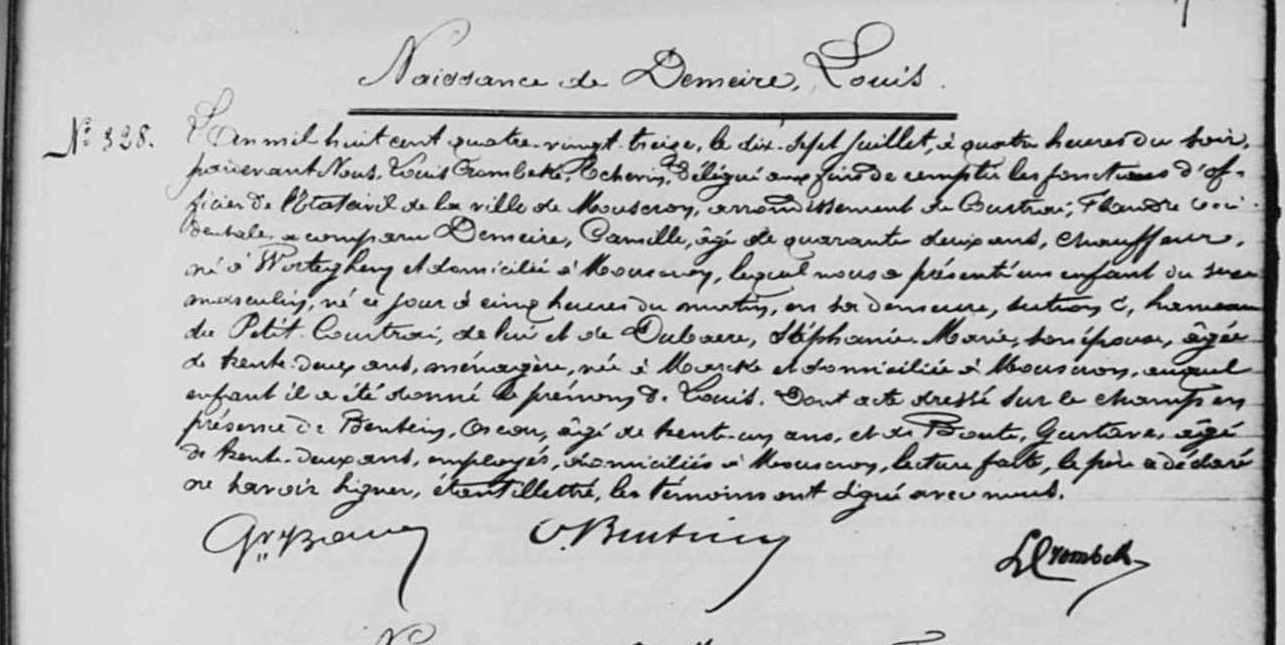 Naissance de Demeire, Louis.
N° 328. L'an mil huit cent quatre-vingt-treize, le dix-sept Juillet, à quatre heures du soir,
pardevant Nous, Louis Crombeke, Echevin, délégué aux fins de remplir les fonctions d'of-
ficier de l'Etat civil de la ville de Mouscron, arrondissement de Courtrai, Flandre occi-
dentale, a comparu Demeire, Camille, âgé de quarante deux ans, chauffeur,
né à Worteghem et domicilié à Mouscron, lequel nous a présenté un enfant du sexe
masculin, né ce jour à cinq heures du matin, en sa demeure, section C, hameau
du Petit Courtrai, de lui et de Dubaere, Stéphanie Marie, son épouse, âgée
de trente-deux ans, ménagère, née à Marcke et domiciliée à Mouscron, auquel
enfant il a été donné le prénom de Louis. Dont acte dressé sur le champ en
présence de Bentein, Oscar, âgé de trente-un ans, et de Boute, Gustave, âgé
de trente-deux ans, employés, domiciliés à Mouscron, lecture faite, le père a déclaré
ne savoir signer, étant illettré, les témoins ont signé avec nous.
O. Bentein L Crombek